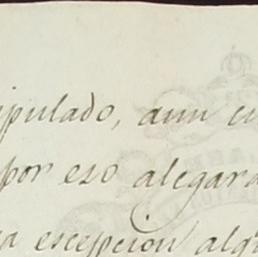 ipulado, aun cu
por eso alegara
a escepcion alg